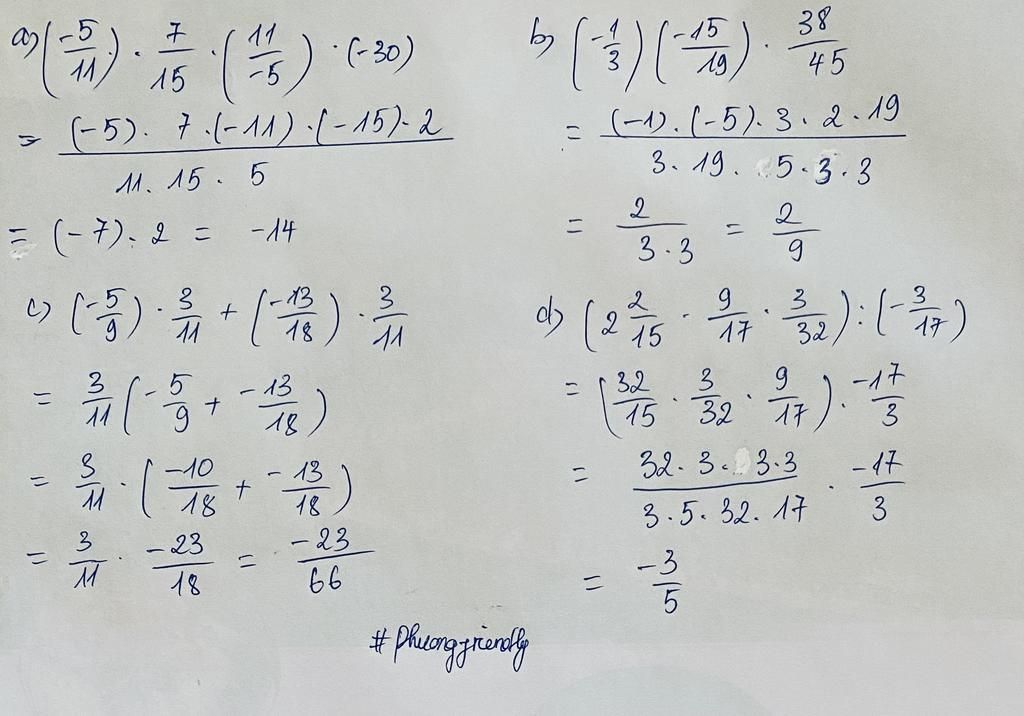 a) (-5/11) · 7/15 · (11/-5) · (-30)
= (-5) · 7 · (-11) · (-15) · 2 / 11 · 15 · 5
= (-7) · 2 = -14
b) (-1/3) (-15/19) · 38/45
= (-1) · (-5) · 3 · 2 · 19 / 3 · 19 · 5 · 3 · 3
= 2 / 3 · 3 = 2/9
c) (-5/9) · 3/11 + (-13/18) · 3/11
= 3/11 (-5/9 + -13/18)
= 3/11 · (-10/18 + -13/18)
= 3/11 · -23/18 = -23/66
d) (2 2/15 · 9/17 · 3/32) : (-3/17)
= (32/15 · 3/32 · 9/17) · -17/3
= 32 · 3 · 3 · 3 / 3 · 5 · 32 · 17 · -17/3
= -3/5
#Phuongfriendly